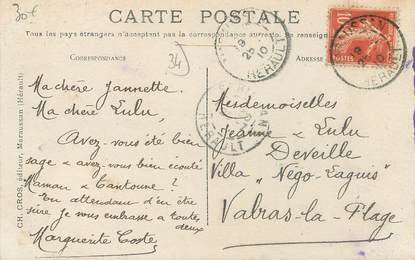 30€
CARTE POSTALE
Tous les pays étrangers n'acceptent pas la correspondance au recto. Se renseigner
CORRESPONDANCE
34
ADRESSE
Ma chère Jannette.
Ma chère Lulu,
Avez-vous été bien
sage & avez-vous bien écouté
Maman & Tantoune?
En attendant d'en être
sûre je vous embrasse a toutes
deux
Marguerite Coste
Mesdemoiselles
Jeanne & Lulu
Deveille
Villa "Négo-Laguis"
Valras-la-Plage
CH. CROS, éditeur, Maraussan (Hérault)
HERAULT
HERAULT
HERAULT
10
POSTES